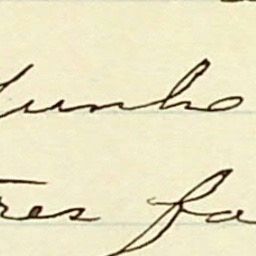 Junho
tres fa